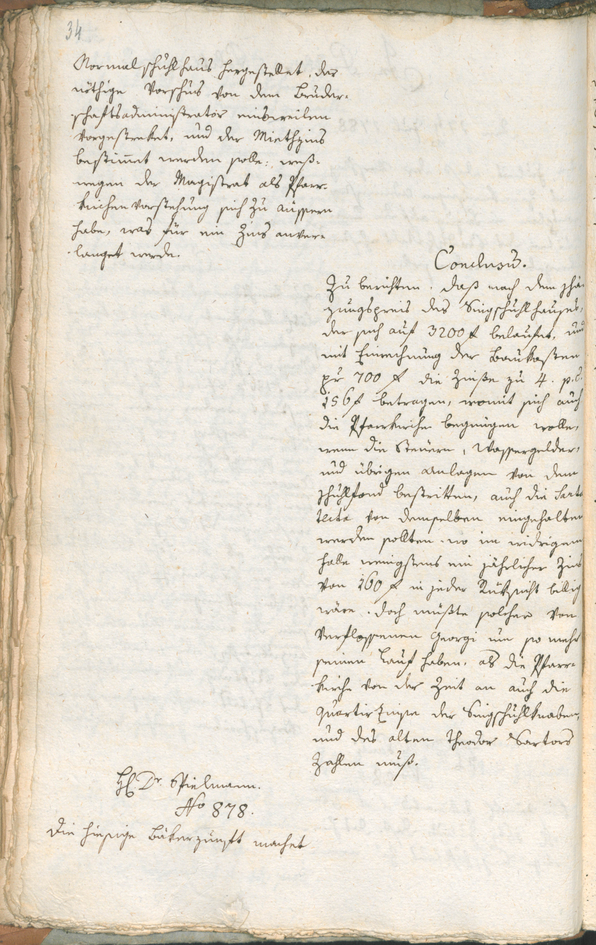 34
Normalschuhlhaus hergestellet, der
nöthige Vorschus von dem Bruder-
schaftsadministrator einsweilen
vorgestreket, und der Miethzins
bestimmt werden solle: weß-
wegen der Magistrat als Pfarr-
kirchenvorstehung sich zu äussern
habe, was für ein Zins anver-
langet werde.
Conclusum.
Zu berichten. daß nach dem schä-
zungspreis des Singschuhlhauses,
der sich auf 3200 f belaufet, und
mit Einrechnung der Baukosten
pr 700 f die Zinße zu 4. p. C.
156 f betragen, womit sich auch
die Pfarrkirche begnügen wolle,
wenn die Steuern, Wassergelder,
und übrigen Anlagen von dem
schuhlfond bestritten, auch die Sarta
tecta von demselben eingehalten
werden sollten. wo im widrigen
falle wenigstens ein jährlicher Zins
von 160 f in jeder Rüksicht billig
wäre. doch müßte solcher von
verflossenen Georgi um so mehr
seinen Lauf haben, als die Pfarr-
kirche von der Zeit an auch die
Quartierzinse der Singschuhlknaben,
und des alten Theodor Sartors
zahlen muß.
H. Dr. Spielmann.
No 878.
Die hiesige Bäkerzunft machet